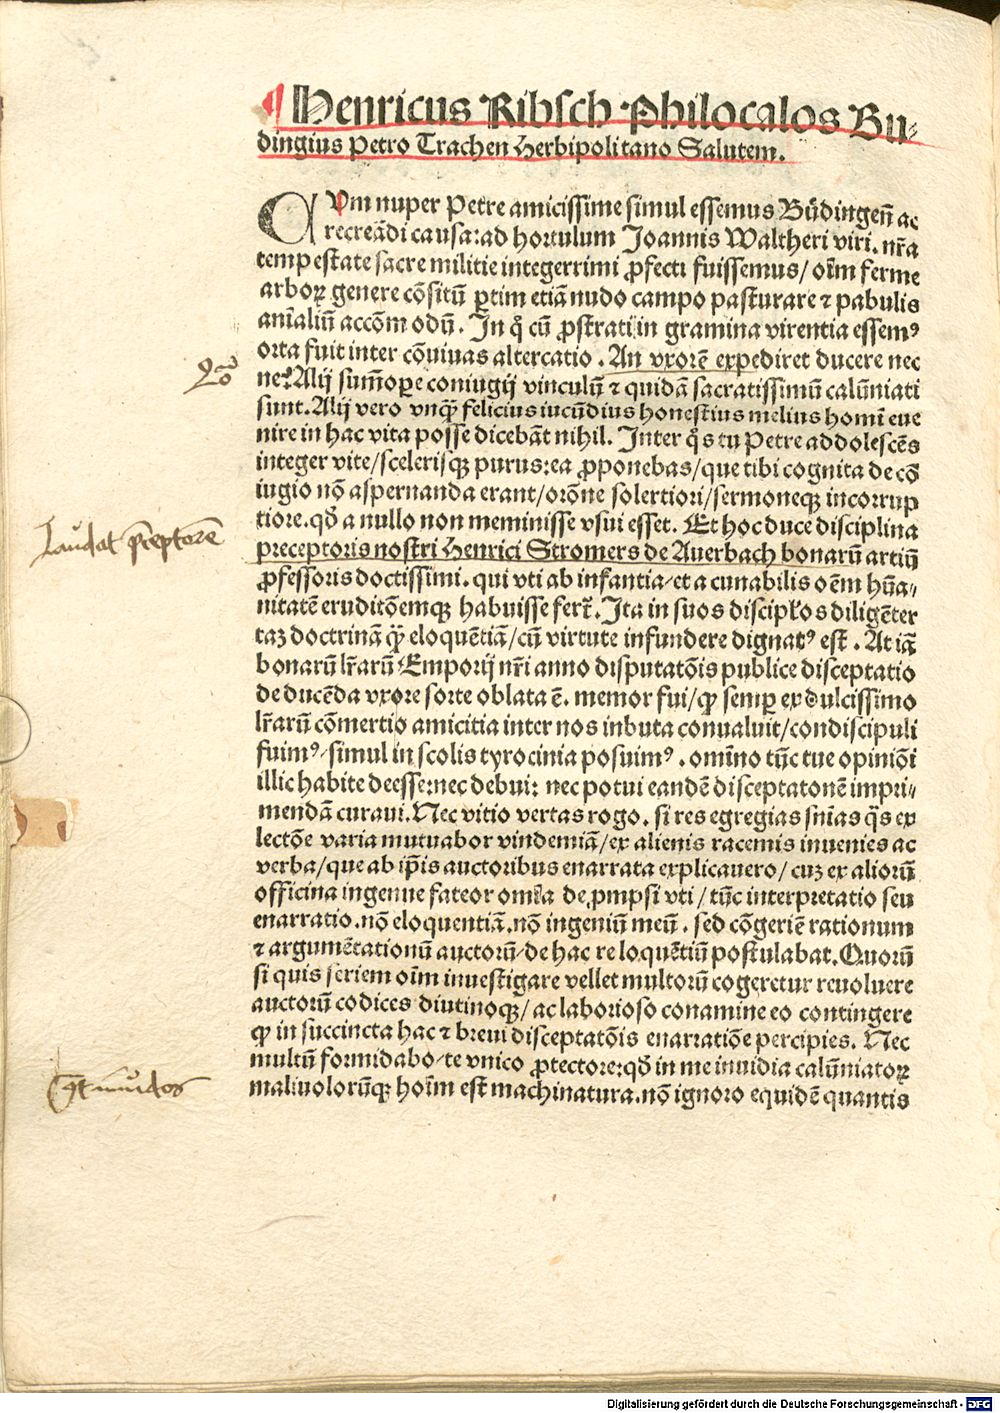 ¶ Henricus Ribsch Philocalos Bu-
dingius Petro Trachen Herbipolitano Salutem.
CVm nuper Petre amicissime simul essemus Büdingeñ ac
recreãdi causa: ad hortulum Joannis Waltheri viri. nr̃a
tempestate sacre militie integerrimi ꝓfecti fuissemus/ oĩm ferme
arboꝝ genere cõsitũ ꝑtim etiã nudo campo pasturare ⁊ pabulis
anĩaliũ accõmodũ. In q̊ cũ ꝓstrati in gramina virentia essemꝰ
orta fuit inter cõuiuas altercatio. An vxorẽ expediret ducere nec
ne? Alij sum̃oꝑe coniugij vinculũ ⁊ quidã sacratissimũ calũniati
sunt. Alij vero vnqꝫ̃ felicius iucũdius honestius melius homĩ eue
nire in hac vita posse dicebãt nihil. Inter q̊s tu Petre addolescẽs
integer vite/ scelerisqꝫ purus: ea ꝓponebas/ que tibi cognita de cõ
iugio nõ aspernanda erant/ orõne solertiori/ sermoneqꝫ incorrup
tiore. qđ a nullo non meminisse vsui esset. Et hoc duce disciplina
preceptoris nostri Henrici Stromers de Auerbach bonarũ artiũ
ꝓfessoris doctissimi. qui vti ab infantia/ et a cunabilis oẽm hũa/
nitatẽ eruditõemqꝫ habuisse fert̃. Ita in suos discipl̃os diligẽter
taꝫ doctrinã qꝫ̃ eloquẽtiã/ cũ virtute infundere dignatꝰ est. At iã
bonarũ lr̃arũ Emporij nr̃i anno disputatõis publice disceptatio
de ducẽda vxore sorte oblata ẽ. memor fui/ qꝫ semꝑ ex dulcissimo
lr̃arũ cõmertio amicitia inter nos inbuta conualuit/ condiscipuli
fuimꝰ/ simul in scolis tyrocinia posuimꝰ. omĩno tũc tue opiniõi
illic habite deesse: nec debui: nec potui eandẽ disceptatonẽ impri/
mendã curaui. Nec vitio vertas rogo. si res egregias sñias q̃s ex
lectõe varia mutuabor vindemiã/ ex alienis racemis inuenies ac
verba/ que ab ip̃is auctoribus enarrata explicauero/ cuꝫ ex aliorũ
officina ingenue fateor omĩa deꝓmpsi vti/ tũc interpretatio seu
enarratio. nõ eloquentiã. nõ ingeniũ meũ. sed cõgeriẽ rationum
⁊ argumẽtationũ auctorũ/ de hac re loquẽtiũ postulabat. Quorũ
si quis seriem oĩm inuestigare vellet multorũ cogeretur reuoluere
auctorũ codices diutinoqꝫ/ ac laborioso conamine eo contingere
qꝫ in succincta hac ⁊ breui disceptatõis enarratiõe percipies. Nec
multũ formidabo/ te vnico ꝓtectore: qđ in me inuidia calũniatoꝝ
maliuolorũqꝫ hoĩm est machinatura. nõ ignoro equidẽ quantis
Qo
Laudat p̄ceptorẽ
Cõt inuidos
Digitalisierung gefördert durch die Deutsche Forschungsgemeinschaft - DFG